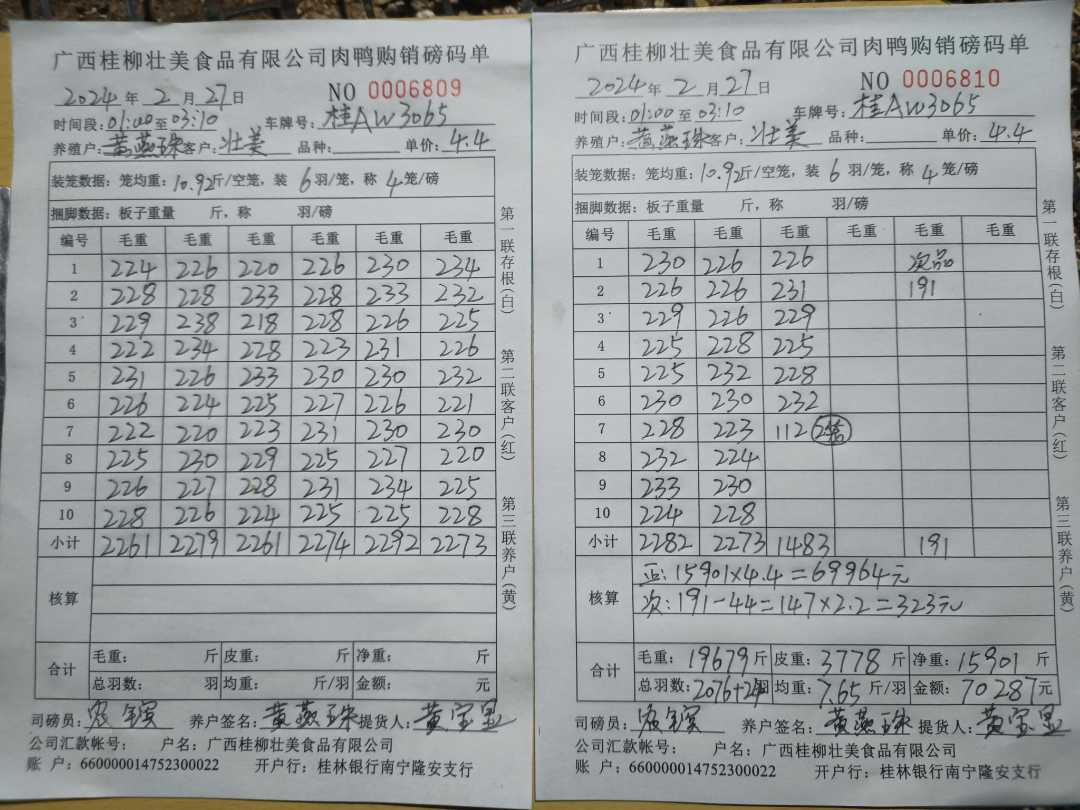 广西桂柳壮美食品有限公司肉鸭购销磅码单
2024 年 2 月 27 日 NO 0006809
时间段: 01:00 至 03:10 车牌号: 桂AW3065
养殖户: 黄燕珠 客户: 壮美 品种: 单价: 4.4
装笼数据: 笼均重: 10.92 斤/空笼, 装 6 羽/笼, 称 4 笼/磅
捆脚数据: 板子重量 斤, 称 羽/磅
编号 毛重 毛重 毛重 毛重 毛重 毛重
1 224 226 220 226 230 234
2 228 228 233 228 233 232
3 229 238 218 228 226 225
4 222 234 228 223 231 226
5 231 226 233 230 230 232
6 226 224 225 227 226 221
7 222 220 223 231 230 230
8 225 230 229 225 227 220
9 226 227 228 231 234 225
10 228 226 224 225 225 228
小计 2261 2279 2261 2274 2292 2273
核算
合计 毛重: 斤 皮重: 斤 净重: 斤
总羽数: 羽 均重: 斤/羽 金额: 元
司磅员: 养户签名: 黄燕珠 提货人:
公司汇款帐号: 户名: 广西桂柳壮美食品有限公司
账 户: 660000014752300022 开户行: 桂林银行南宁隆安支行
第一联存根(白) 第二联客户(红) 第三联养户(黄)
广西桂柳壮美食品有限公司肉鸭购销磅码单
2024 年 2 月 27 日 NO 0006810
时间段: 01:00 至 03:10 车牌号: 桂AW3065
养殖户: 黄燕珠 客户: 壮美 品种: 单价: 4.4
装笼数据: 笼均重: 10.92 斤/空笼, 装 6 羽/笼, 称 4 笼/磅
捆脚数据: 板子重量 斤, 称 羽/磅
编号 毛重 毛重 毛重 毛重 毛重 毛重
1 230 226 226 次品
2 226 226 231 191
3 229 226 229
4 225 228 225
5 225 232 228
6 230 230 232
7 228 223 112
8 232 224
9 233 230
10 224 228
小计 2282 2273 1483 191
核算 正: 15901×4.4=69964元
次: 191-44=147×2.2=323元
合计 毛重: 19679 斤 皮重: 3778 斤 净重: 15901 斤
总羽数: 2076+24 羽 均重: 7.65 斤/羽 金额: 70287 元
司磅员: 养户签名: 黄燕珠 提货人:
公司汇款帐号: 户名: 广西桂柳壮美食品有限公司
账 户: 660000014752300022 开户行: 桂林银行南宁隆安支行
第一联存根(白) 第二联客户(红) 第三联养户(黄)